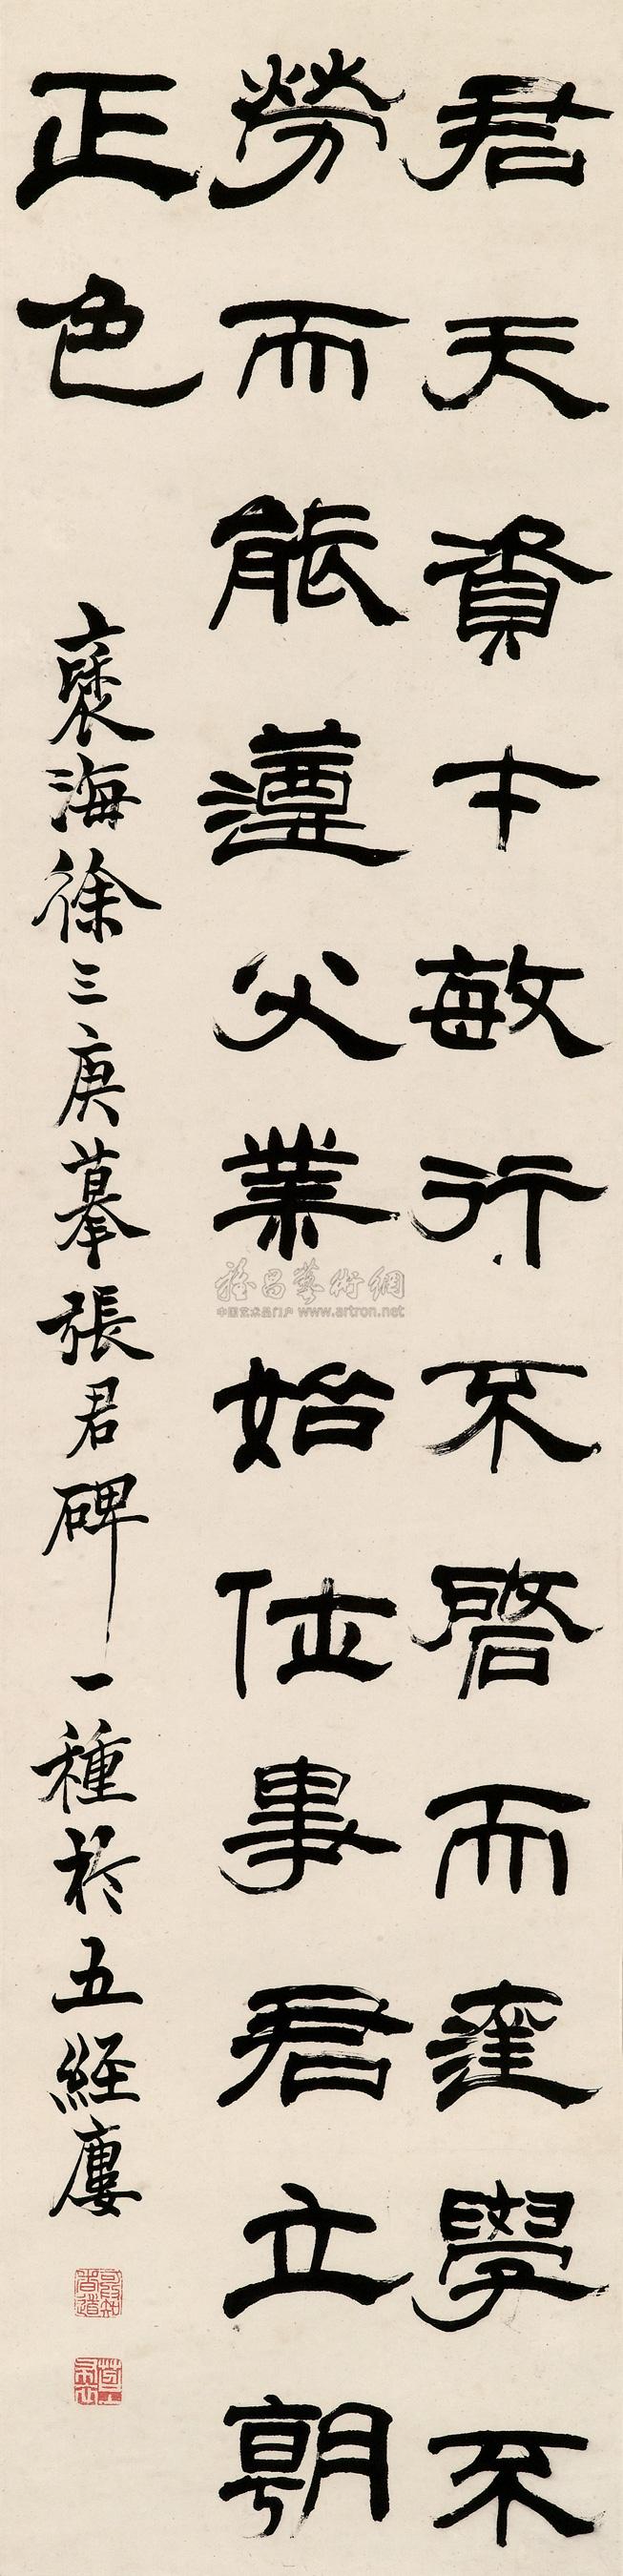 君天資才敏行不啓而達學不
勞而能遵父業始位事君立朝
正色
褎海徐三庚摹張君碑一種於五經廔
雅昌藝術網
中国艺术品门户 www.artron.net